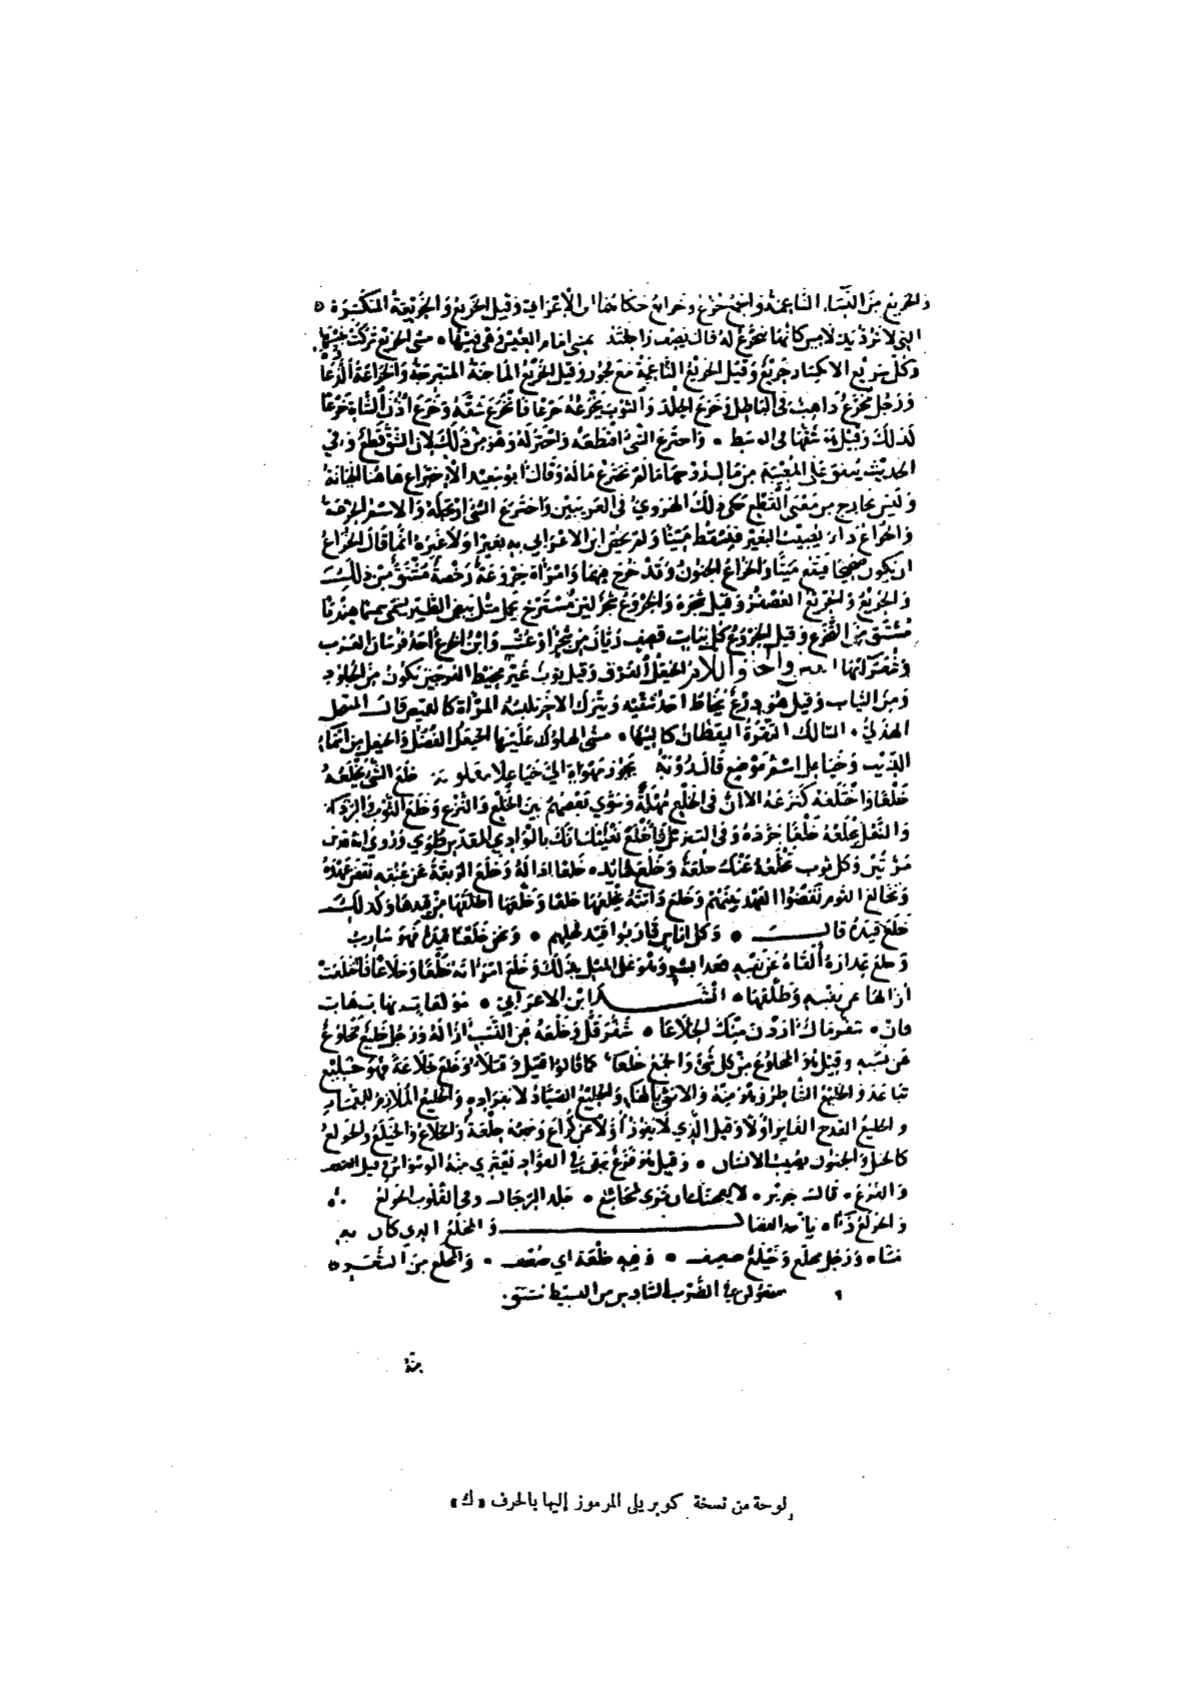 والخريع من النساء الناعمة والجمع خروع وخرائع حكاهما ابن الاعرابي وقيل الخريع والخريعة المتكسرة
التي لا ترد يد لامس كانها تخرع له قال يصف راحلته يمشي امام العيس وهي فيها مشي الخريع تركت بنيها
وكل سريع الانكسار خريع وقيل الخريع الناعمة مع فجور وقيل الخريع الماجنة المتبرجة والخراعة الدعارة
ورجل مخرع ذاهب في الباطل وخرع الجلد والثوب يخرعه خرعا فانخرع شقه وخرع اذن الشاة خرعا
كذلك وقيل هو شقها في الوسط واخترع الشئ اقتطعه واختزله وهو من ذلك لان الشق قطع وفي
الحديث ينفق على المغيبة من مال زوجها ما لم تخترع ماله وقال ابو سعيد الاختراع هاهنا الخيانة
وليس بخارج من معنى القطع حكى ذلك الهروي في الغريبين واخترع الشئ ارتجله والاسم الخرعة
والخراع داء يصيب البعير فيسقط ميتا ولم يخص ابن الاعرابي به بعيرا ولا غيره انما قال الخراع
ان يكون صحيحا فيقع ميتا والخراع الجنون وقد خرع فيهما وامراة خروعة رخصة مشتق من ذلك
والخريع والخريع العصفر وقيل شجرة والخروع شجر لين مسترخ يحمل مثل بيض الطير يسمى سمسما هنديا
مشتق من التخرع وقيل الخروع كل نبات قصيف ريان من شجر او عشب وابن الخرع احد فرسان العرب
وشعرائها العين والخاء واللام الخيعل الفرو وقيل ثوب غير مخيط الفرجين يكون من الجلود
ومن الثياب وقيل هو درع يخاط احد شقيه ويترك الاخر تلبسه المراة كالقميص قال المتنخل
الهذلي السالك الثغرة اليقظان كالئها مشي الهلوك عليها الخيعل الفضل والخيعل من اسماء
الذئب وخيا عل اسم موضع قال رؤبة يجوز مهواة الى خيا علا مقلوبه خلع الشئ يخلعه
خلعا واختلعه كنزعه الا ان في الخلع مهلة وسوى بعضهم بين الخلع والنزع وخلع الثوب والرداء
والنعل يخلعه خلعا جرده وفي التنزيل فاخلع نعليك انك بالوادي المقدس طوى وروي انه قدس
مرتين وكل ثوب تخلعه عنك خلعة وخلع قائده خلعا اداله وخلع الربقة عن عنقه نقض عهده
وتخالع القوم نقضوا العهد بينهم وخلع دابته يخلعها خلعا وخلعها اطلقها من قيدها وكذلك
خلع قيده قال وكل اناس قاربوا قيد فحلهم ونحن خلعنا قيده فهو سارب
وخلع عذاره القاه عن نفسه فعدا بشر وهو على المثل بذلك وخلع امراته خلعا وخلاعا فاختلعت
ازالها عن نفسه وطلقها انشد ابن الاعرابي مولعات بهات هات
فان شفر مال اردن منك الخلاعا شفر قل وخلعه من النسب ازاله ورجل خليع مخلوع
عن نفسه وقيل هو المخلوع من كل شئ والجمع خلعاء كما قالوا قتيل وقتلاء وخلع خلاعة فهو خليع
تباعد والخليع الشاطر وهو منه والانثى بالهاء والخليع الصياد لانفراده والخليع الملازم للقمار
والخليع القدح الفائز اولا وقيل الذي لا يفوز اولا عن كراع وجمعه خلعة والخلاع والخيلع والخولع
كالخبل والجنون يصيب الانسان وقيل هو فزع يبقى في الفؤاد يعتري منه الوسواس وقيل الضعف
والفزع قال جرير لا يعجبنك ان ترى لمجاشع جلد الرجال وفي القلوب الخولع
والخولع داء ياخذ الفصال والمخلع الذي كان به
مسا ورجل مخلع وخيلع ضعيف وفيه خلعة اي ضعف والمخلع من الشعر
مفعولن في الضرب السادس من البسيط مشتق
منه
لوحة من نسخة كوبريلى المرموز إليها بالحرف «ك»